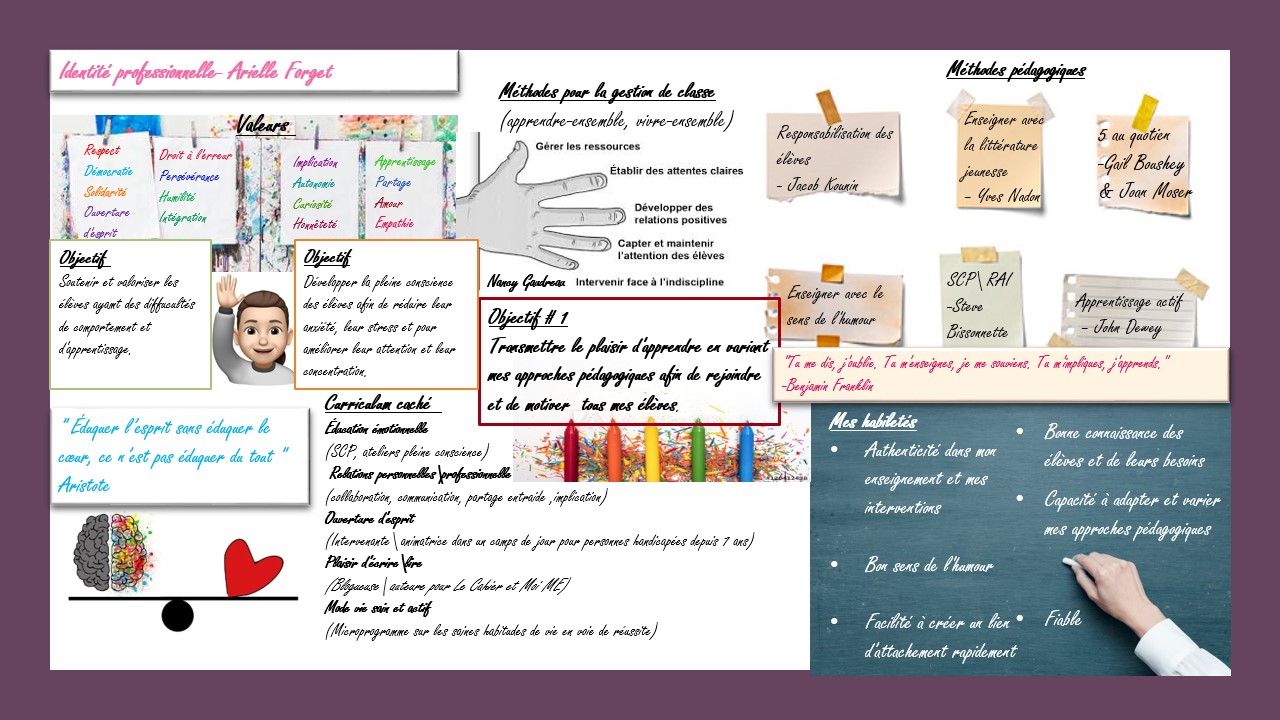 Identité professionnelle- Arielle Forget
Valeurs
Respect
Démocratie
Solidarité
Ouverture
d'esprit
Droit à l'erreur
Persévérance
Humilité
Intégration
Implication
Autonomie
Curiosité
Honnêteté
Apprentissage
Partage
Amour
Empathie
Objectif
Soutenir et valoriser les
élèves ayant des difficultés
de comportement et
d'apprentissage.
Objectif
Développer la pleine conscience
des élèves afin de réduire leur
anxiété, leur stress et pour
améliorer leur attention et leur
concentration.
" Éduquer l'esprit sans éduquer le
cœur, ce n'est pas éduquer du tout "
Aristote
Méthodes pour la gestion de classe
(apprendre-ensemble, vivre-ensemble)
Gérer les ressources
Établir des attentes claires
Développer des
relations positives
Capter et maintenir
l'attention des élèves
Nancy Gaudreau Intervenir face à l'indiscipline
Objectif # 1
Transmettre le plaisir d'apprendre en variant
mes approches pédagogiques afin de rejoindre
et de motiver tous mes élèves.
Curriculum caché
Éducation émotionnelle
(SCP, ateliers pleine conscience)
Relations personnelles\professionnelle
(collaboration, communication, partage entraide ,implication)
Ouverture d'esprit
(Intervenante \ animatrice dans un camps de jour pour personnes handicapées depuis 7 ans)
Plaisir d'écrire\lire
(Blogueuse \ auteure pour Le Cahier et Moi MLF)
Mode vie sain et actif
(Microprogramme sur les saines habitudes de vie en voie de réussite)
Méthodes pédagogiques
Responsabilisation des
élèves
- Jacob Kounin
Enseigner avec
la littérature
jeunesse
- Yves Nadon
5 au quotien
-Gail Boushey
& Joan Moser
Enseigner avec le
sens de l'humour
SCP\ RAI
-Steve
Bissonnette
Apprentissage actif
- John Dewey
"Tu me dis, j'oublie. Tu m'enseignes, je me souviens. Tu m'impliques, j'apprends."
-Benjamin Franklin
Mes habiletés
• Authenticité dans mon
enseignement et mes
interventions
• Bon sens de l'humour
• Facilité à créer un lien
d'attachement rapidement
• Bonne connaissance des
élèves et de leurs besoins
• Capacité à adapter et varier
mes approches pédagogiques
• Fiable